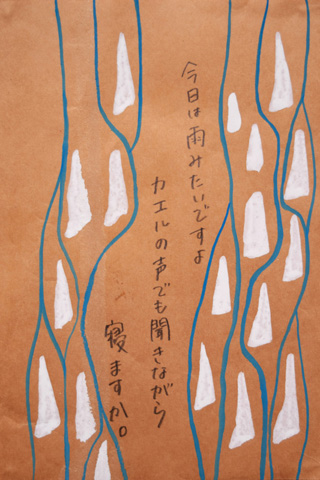 今日は雨みたいですよ
カエルの声でも聞きながら
寝ますか。